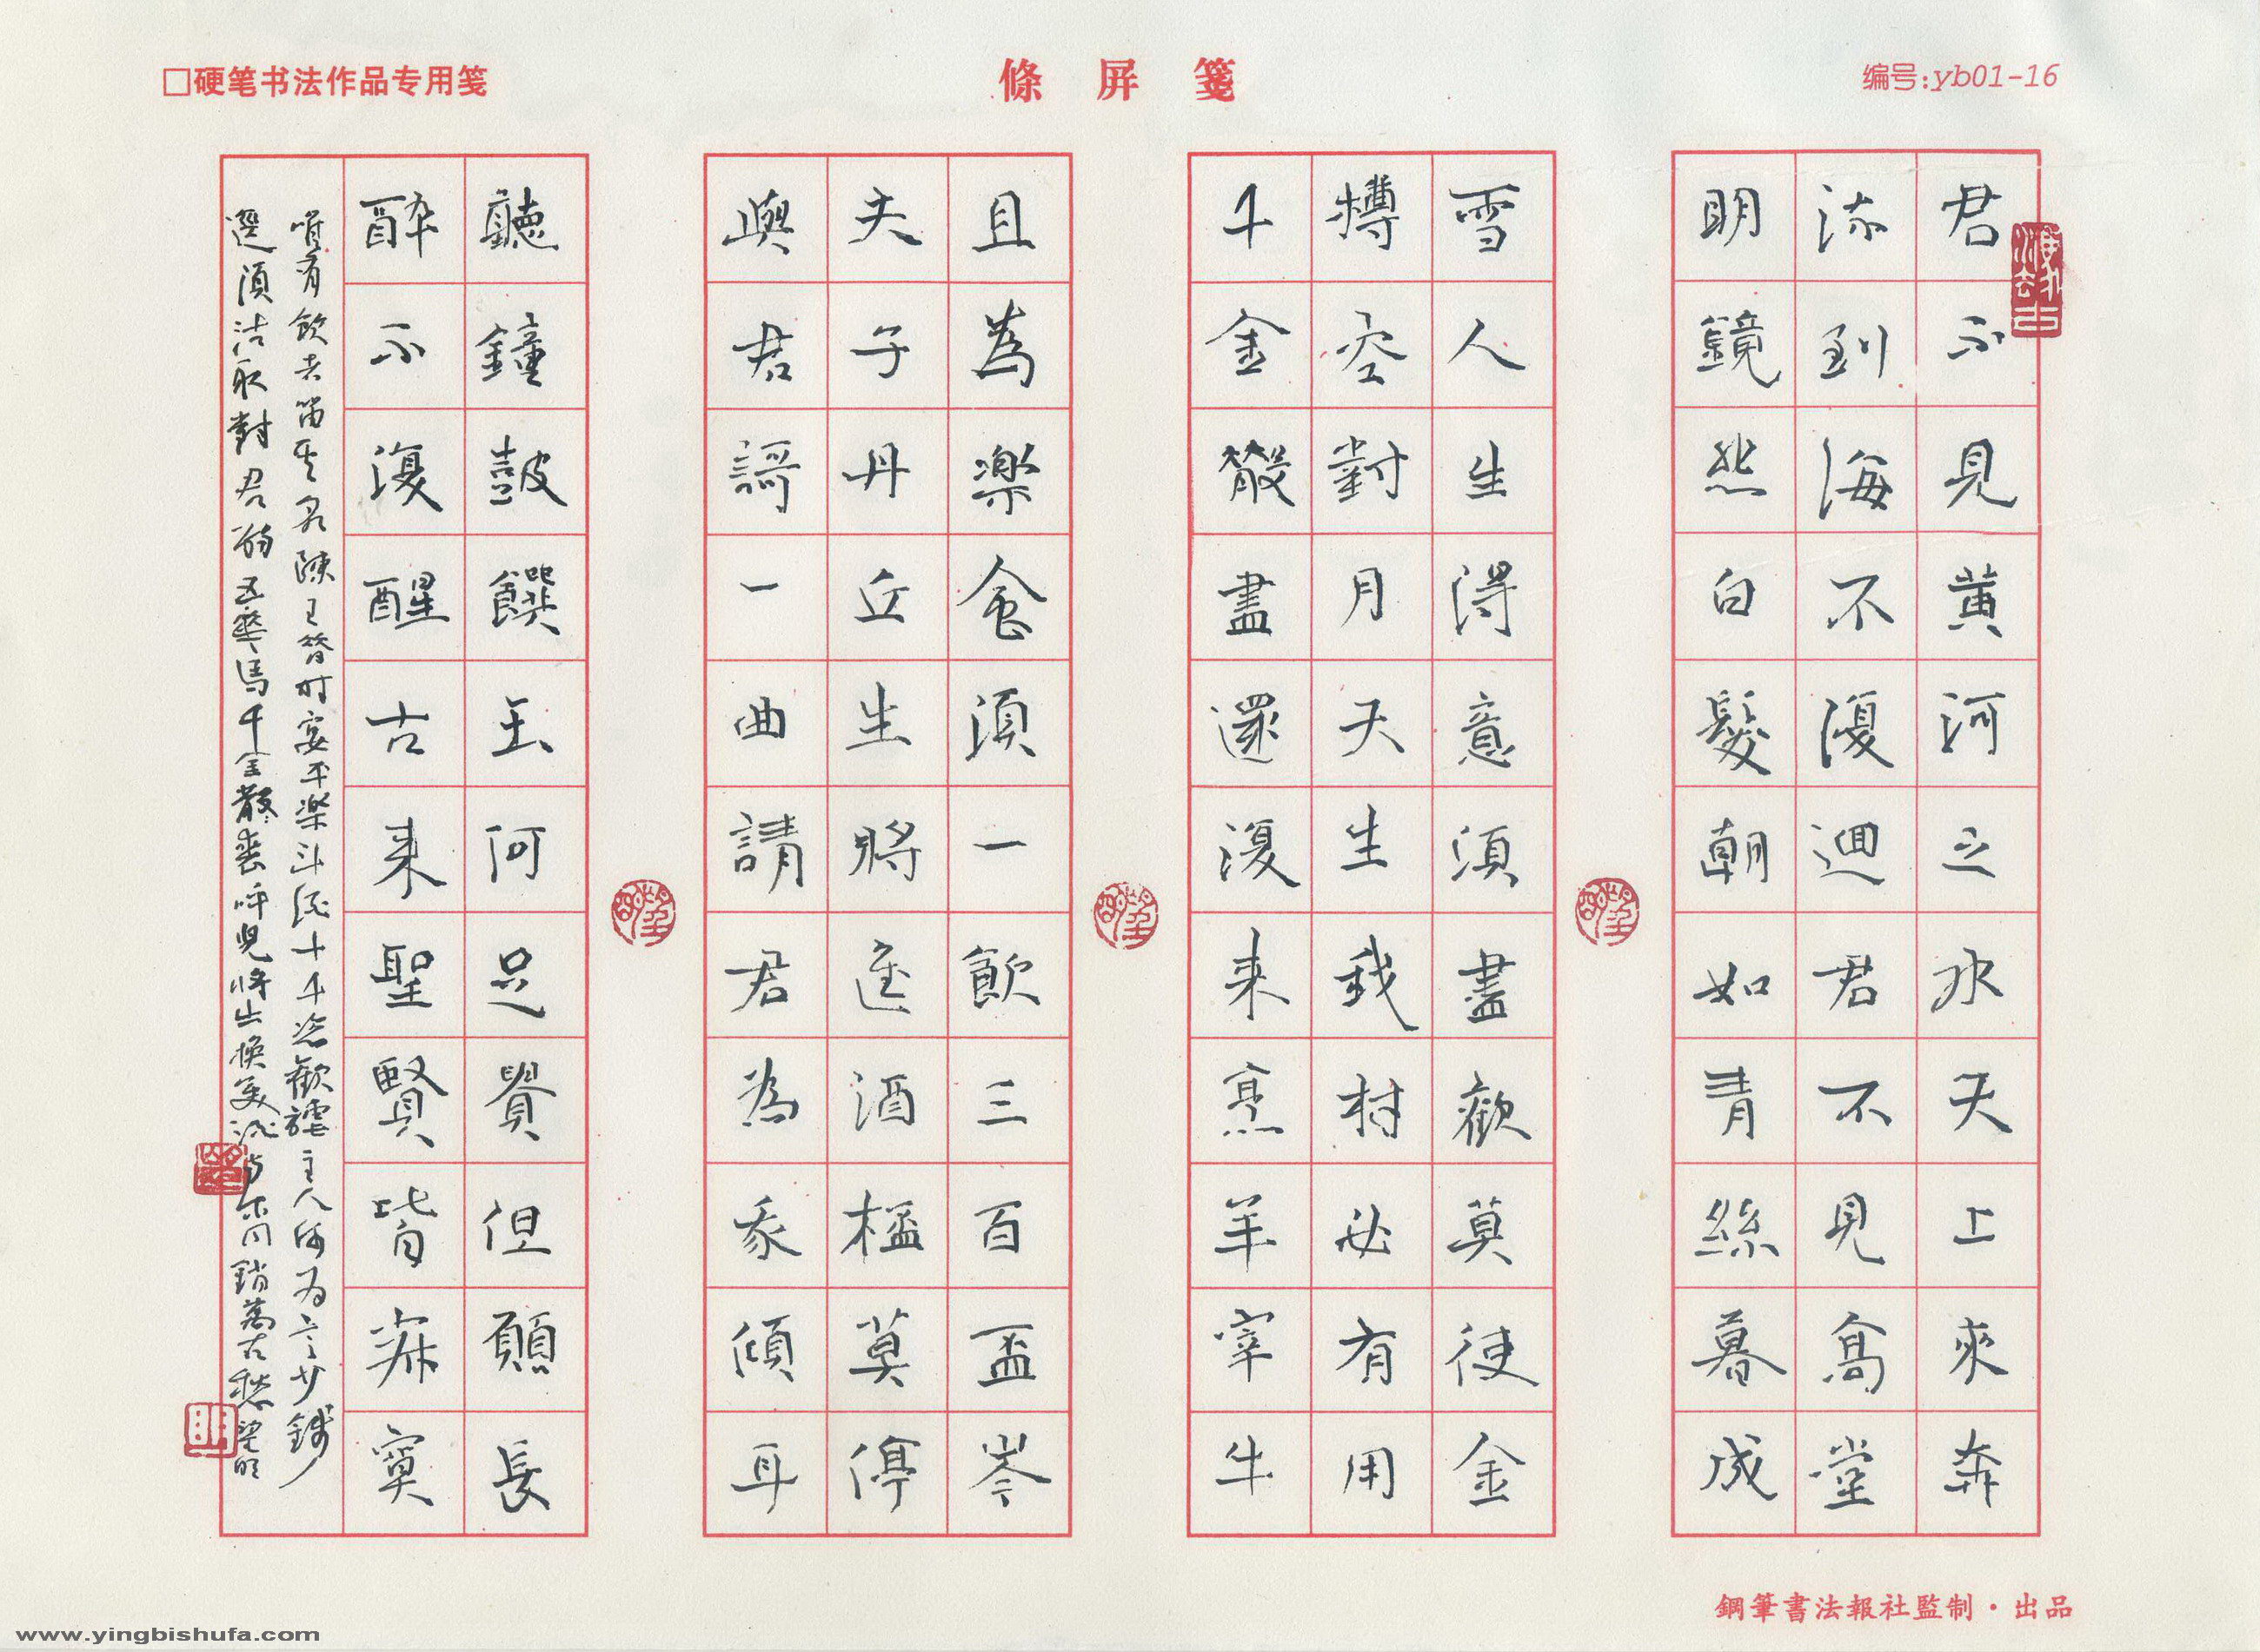 □硬笔书法作品专用笺
條屏箋
编号:yb01-16
君不見黄河之水天上來奔
流到海不復迴君不見高堂
明鏡悲白髮朝如青絲暮成
雪人生得意須盡歡莫使金
樽空對月天生我材必有用
千金散盡還復来烹羊宰牛
且為樂會須一飲三百盃岑
夫子丹丘生將進酒杯莫停
與君謌一曲請君為我傾耳
聽鐘鼓饌玉何足貴但願長
醉不復醒古来聖賢皆寂寞
唯有飲者留其名陳王昔時宴平樂斗酒十千恣歡謔主人何为言少錢
選須沽取對君酌五華馬千金散裘呼兒將出換美酒与尔同銷萬古愁望明
鋼筆書法報社監制·出品
www.yingbishufa.com